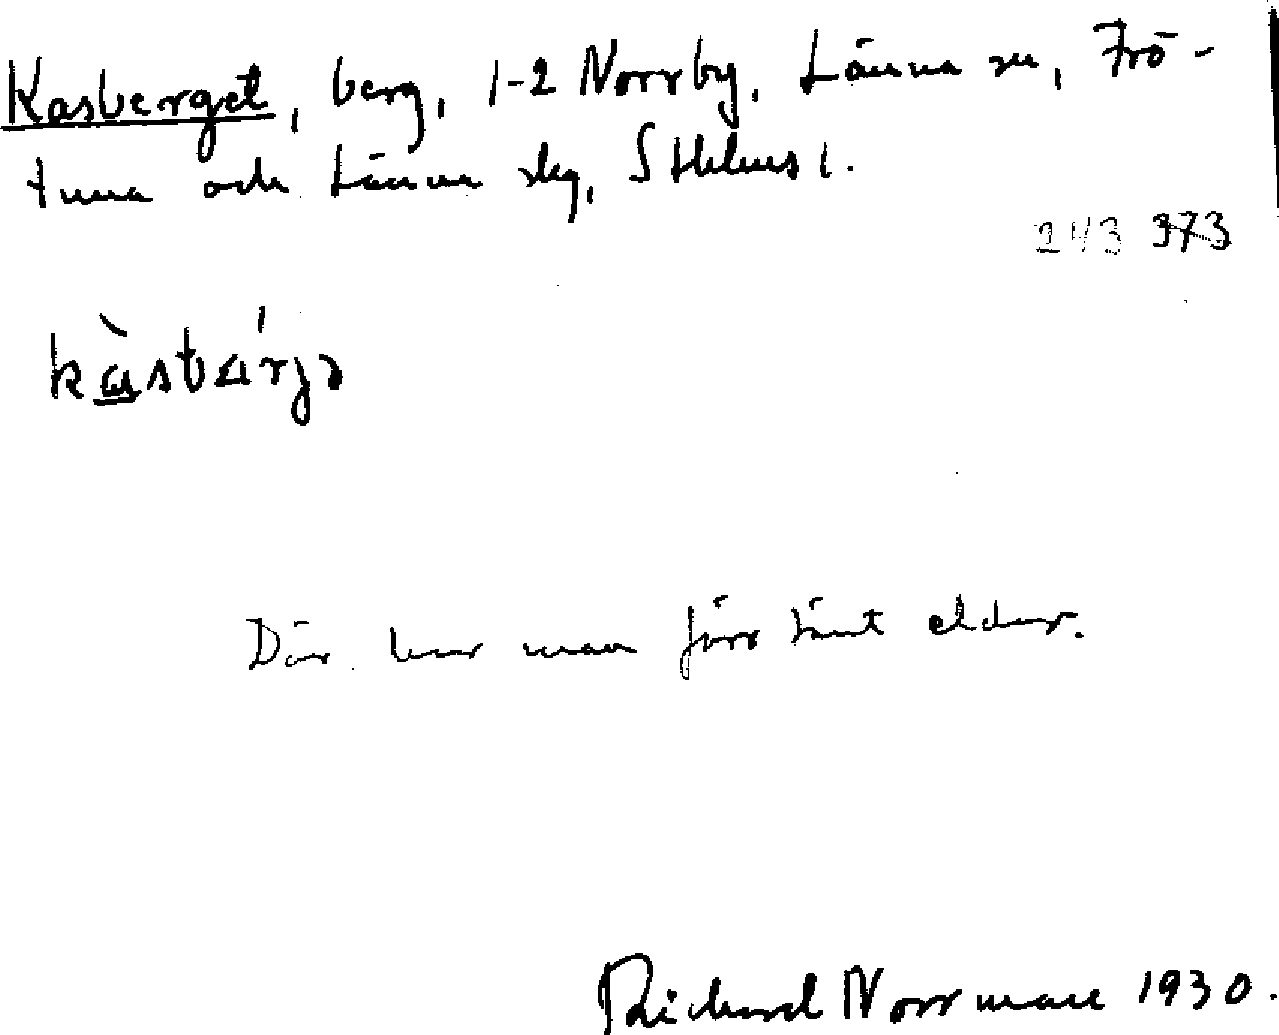 Kasberget, berg, 1-2 Norrby, Länna sn, Frö-
tuna och Länna skg, Sthlms l.
243 373
Där har man förr tänt eldar.
Richard Norrman 1930.